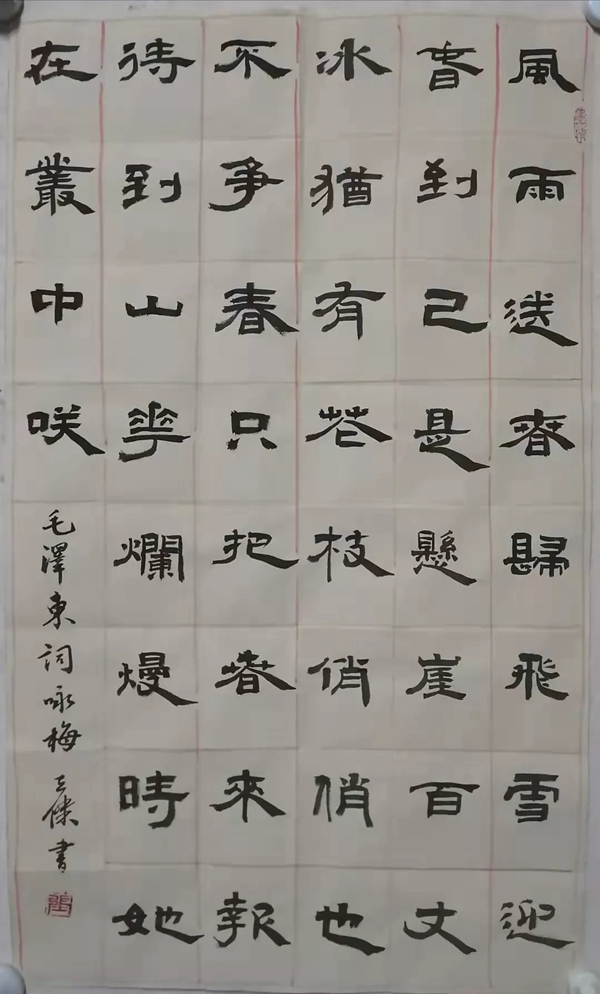 風雨送春歸飛雪迎
春到已是懸崖百丈
冰猶有花枝俏俏也
不爭春只把春來報
待到山花爛熳時她
在叢中咲
毛澤東詞咏梅 傑書